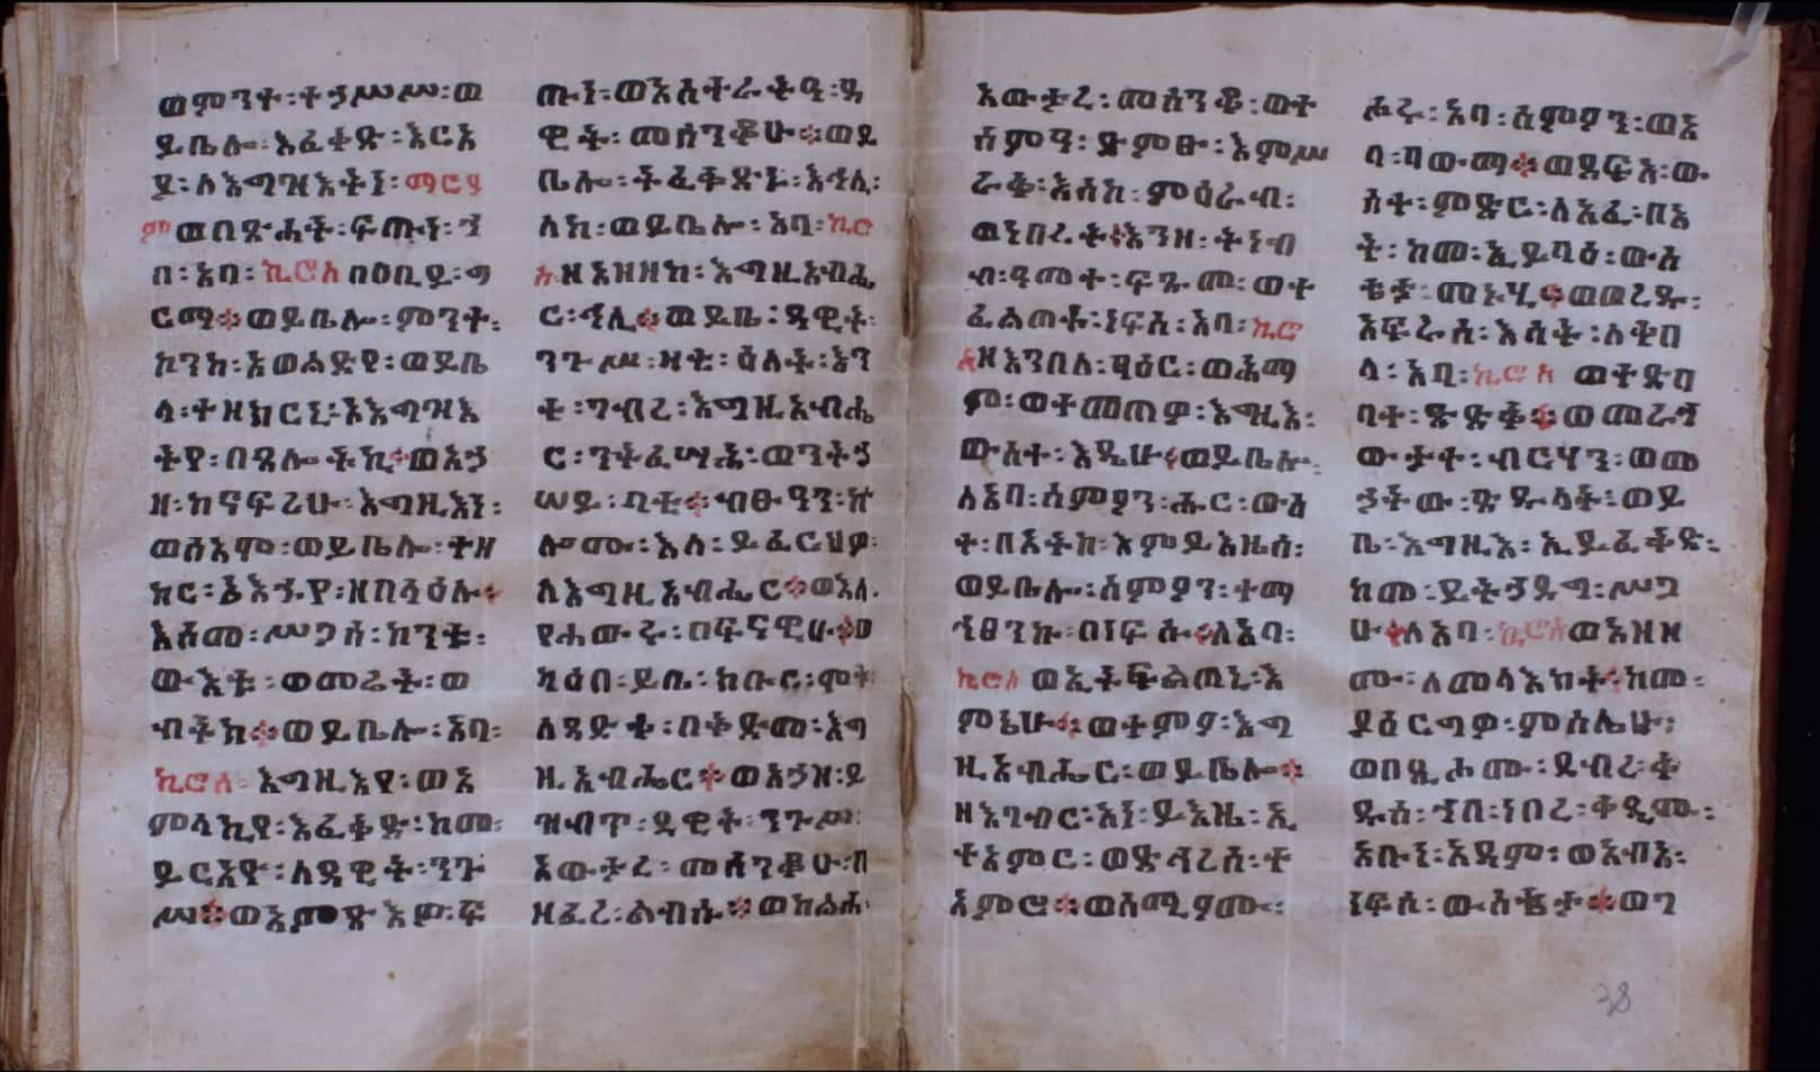 ወምንት፡ተኃሥሥ፡ወ
ይቤሎ፡እፈቅድ፡እርአ
ያ፡ለእግዝእትነ፡ማርያ
ም፡ወበጽሐት፡ፍጡነ፡ኀ
በ፡አባ፡ኪሮስ፡በዐቢይ፡ግ
ርማ፨ወይቤሎ፡ምንት፡
ኮንከ፡አወልድየ፡ወይቤ
ላ፡ተዘክርኒ፡አእግዝእ
ትየ፡በጸሎትኪ፨ወአኃ
ዘ፡ከናፍሪሁ፡እግዚእነ፡
ወሰአሞ፡ወይቤሎ፡ተዘ
ከር፡ፎእኁየ፡ዘበላዕሉ፨
እስመ፡ሥጋሰ፡ከንቱ፡
ውእቱ፡ወመሬት፡ወ
ብችክ፨ወይቤሎ፡አባ፡
ኪሮስ፡እግዚእየ፡ወአ
ምላኪየ፡እፈቅድ፡ከመ፡
ይርአዮ፡ለዳዊት፡ንጉ
ሥ፨ወአምጽእዎ፡ፍ
ጡነ፡ወእስትራቅዒ፡ዳ
ዊት፡መሰንቆሁ፨ወይ
ቤሎ፡ትፈቅድኑ፡እኅሊ፡
ለከ፡ወይቤሎ፡አባ፡ኪሮ
ስ፡ዘአዝዘከ፡እግዚአብሔ
ር፡ኅሊ፨ወይቤ፡ዳዊት፡
ንጉሥ፡ዛቲ፡ዕለት፡እን
ተ፡ገብረ፡እግዚአብሔ
ር፡ንትፈሣሕ፡ወንትኃ
ሠይ፡ባቲ፨ብፁዓን፡ኵ
ሎሙ፡እለ፡ይፈርህዎ፡
ለእግዚአብሔር፨ወእለ፡
የሐውሩ፡በፍናዊሁ፨ወ
ካዕበ፡ይቤ፡ክቡር፡ሞቱ፡
ለጻድቅ፡በቅድመ፡እግ
ዚአብሔር፨ወአኃዘ፡ይ
ዝብጥ፡ዳዊት፡ንጉሥ፡
አውታረ፡መሰንቆሁ፡በ
ዘፈረ፡ልብሱ፨ወከልሐ፡
አውታረ፡መሰንቆ፡ወተ
ሰምዓ፡ድምፁ፡እምሥ
ራቅ፡እስከ፡ምዕራብ፡
ወነበረት፨እንዘ፡ትነብ
ብ፡ዓመተ፡ፍጹመ፡ወተ
ፈልጠት፡ነፍሰ፡አባ፡ኪሮ
ስ፡ዘእንበለ፡ጻዕር፡ወሕማ
ም፡ወተመጠዎ፡እግዚእ፡
ውስተ፡እዴሁ፨ወይቤሎ፡
ለአባ፡ስምዖን፡ሑር፡ውስ
ተ፡በአትከ፡እምይእዜሰ፡
ወይቤሎ፡ስምዖን፡ተማ
ኅፀንኩ፡በነፍሱ፨ለአባ፡
ኪሮስ፡ወኢትፍልጠኒ፡እ
ምኔሁ፨ወተምዖ፡እግ
ዚአብሔር፡ወይቤሎ፨
ዘእገብር፡አነ፡ይእዜ፡ኢ
ተአምር፡ወድኅረሰ፡ተ
አምሮ፨ወሰሚዖሙ፡
ሖሩ፡አባ፡ስምዖን፡ወአ
ባ፡ባውማ፨ወጸፍአ፡ው
ስተ፡ምድር፡ለአፈ፡በአ
ት፡ከመ፡ኢይባዕ፡ውስ
ቴቱ፡መኑሂ፨ወወረዱ፡
አፍራስ፡እሳት፡ለቀበ
ላ፡አባ፡ኪሮስ፡ወተጽዕ
ነት፡ጽድቅ፨ወመራኅ
ውታተ፡ብርሃን፡ወመ
ኃትው፡ጽዱላት፡ወይ
ቤ፡እግዚእ፡ኢይፈቅድ፡
ከመ፡ይትኃደግ፡ሥጋ
ሁ፨ለአባ፡ኪሮስ፡ወአዘዘ
ሙ፡ለመላእክት፡ከመ፡
ያዕርግዎ፡ምስሌሁ፡
ወበጺሖሙ፡ደብረ፡ቅ
ዱስ፡ኀበ፡ነበረ፡ቀዲሙ፡
አቡነ፡አዳም፡ወአብአ፡
ነፍሰ፡ውስቴታ፨ወገ